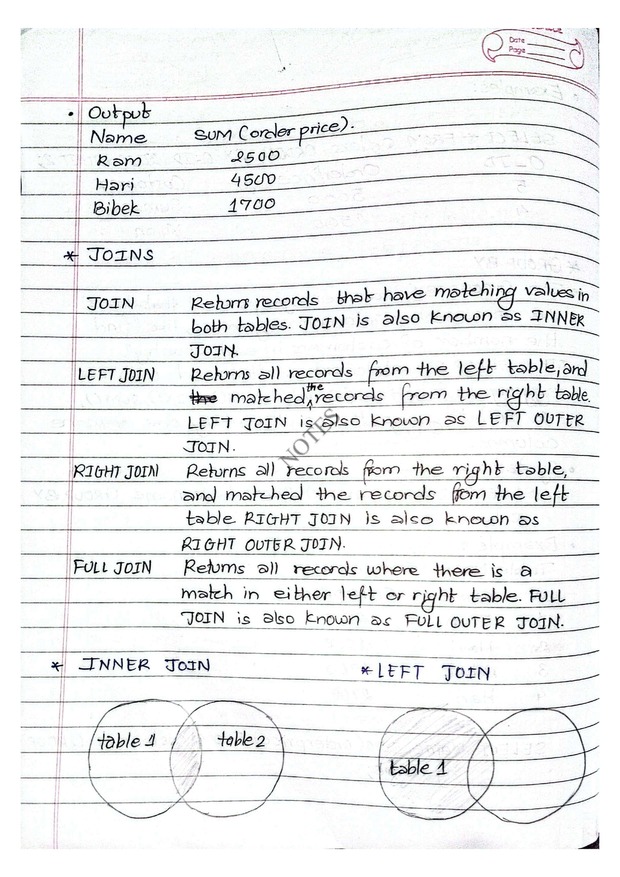 Date
Page
• Output
Name SUM (order price).
Ram 2500
Hari 4500
Bibek 1700
* JOINS
JOIN Returns records that have matching values in
both tables. JOIN is also known as INNER
JOIN.
LEFT JOIN Returns all records from the left table, and
the matched the records from the right table.
LEFT JOIN is also known as LEFT OUTER
JOIN.
NOTES
RIGHT JOIN Returns all records from the right table,
and matched the records from the left
table RIGHT JOIN is also known as
RIGHT OUTER JOIN.
FULL JOIN Returns all records where there is a
match in either left or right table. FULL
JOIN is also known as FULL OUTER JOIN.
* INNER JOIN * LEFT JOIN
table 1 table 2
table 1